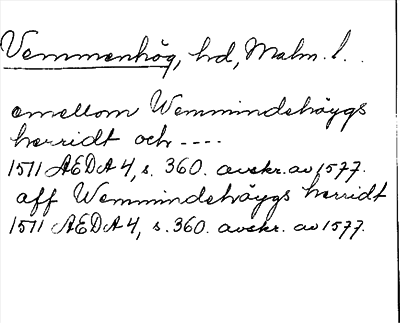 Vemmenhög, hd, Malm. l.
emellom Wemmindehöygs
herridt och ----
1511 ÆDA 4, s. 360. avskr. av 1577.
aff Wemmindehöygs herridt
1511 ÆDA 4, s. 360. avskr. av 1577.